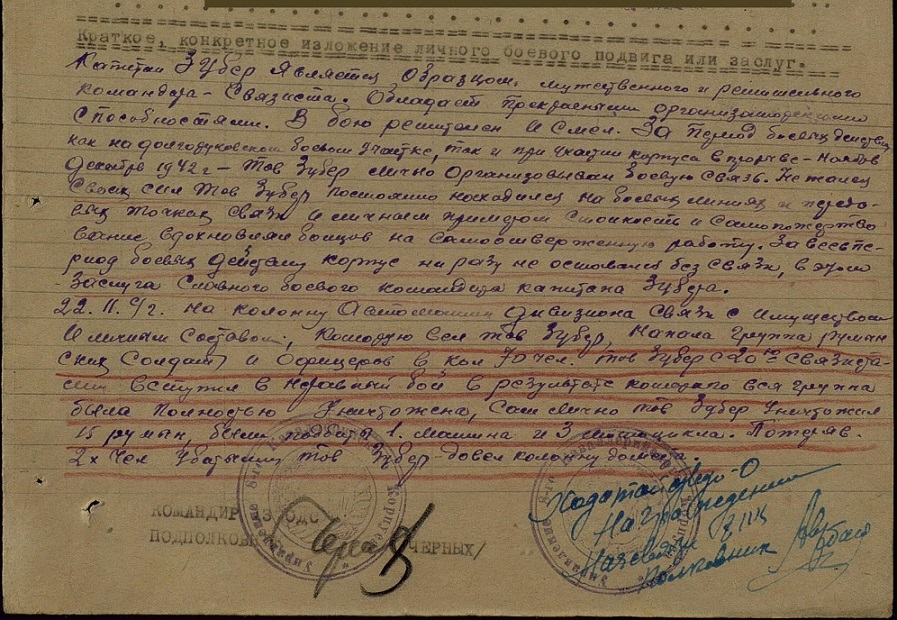 Краткое, конкретное изложение личного боевого подвига или заслуг.
Капитан Зубер является образцом, мужественного и решительного
командира-связиста. Обладает прекрасными организаторскими
способностями. В бою решителен и смел. За период боевых действ.
как на долгоруковском боевом участке, так и при участии корпуса в прорыве-ноябрь
декабрь 1942г - тов Зубер лично организовывал боевую связь. Не жалея
своих сил тов Зубер постоянно находился на боевых линиях и передо-
вых точках связи и личным примером стойкость и самопожертво
вание вдохновлял бойцов на самоотверженную работу. За весь пе-
риод боевых действий корпус ни разу не оставался без связи, в этом
заслуга славного боевого командира капитана Зубера.
22.11. с/г. на колонну автомашин дивизиона связи с имуществом
и личным составом, которую вел тов Зубер, напала группа румын
ских солдат и офицеров в кол. 70 чел. тов Зубер с 20ю связиста-
ми вступил в неравный бой в результате которого вся группа
была полностью уничтожена, сам лично тов Зубер уничтожил
15 румын, были подбиты 1. машина и 3 мотоцикла. Потеряв.
2х чел убитыми тов Зубер довел колонну до места.
КОМАНДИР ОДС
ПОДПОЛКОВНИК ЧЕРНЫХ/
Ходатайствую-о
награждении
Начсвязи
полковник